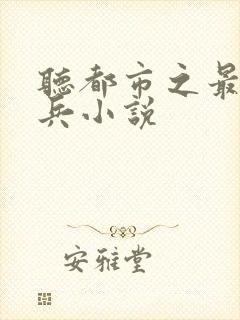 聽都市之最
兵小說
安雅堂